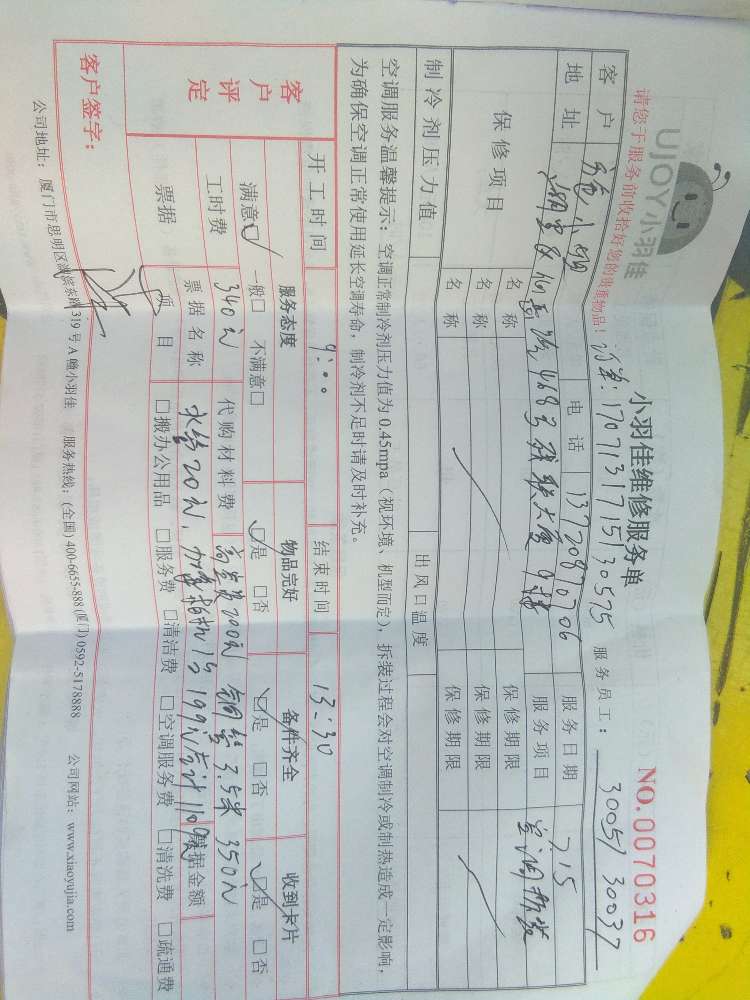 UJOY小羽佳
小羽佳维修服务单
NO.0070316
请您于服务前收拾好您的贵重物品!
订单:1707131715130575
服务员工:
3005/30037
客户
电话
13720870706
服务日期
7.15
地址
服务项目
空调拆装
保修项目
名称
保修期限
名称
保修期限
名称
保修期限
制冷剂压力值
出风口温度
空调服务温馨提示:空调正常制冷剂压力值为0.45mpa(视环境、机型而定),拆装过程会对空调制冷或制热造成一定影响,
为确保空调正常使用延长空调寿命,制冷剂不足时请及时补充。
开工时间
9:00
结束时间
13:30
客户评定
服务态度
物品完好
备件齐全
收到卡片
满意☑ 一般□ 不满意□
☑是 □否
☑是 □否
☑是 □否
工时费
340元
代购材料费
高空费200元 铜管3.5米 350元
票据
票据名称
水管20元,
199元
票据金额
项目
□搬办公用品 □服务费 □清洁费 □空调服务费 □清洗费 □疏通费
客户签字:
公司地址:厦门市思明区湖滨东路319号A幢小羽佳 服务热线:(全国)400-6655-888 (厦门)0592-5178888 公司网站:www.xiaoyujia.com